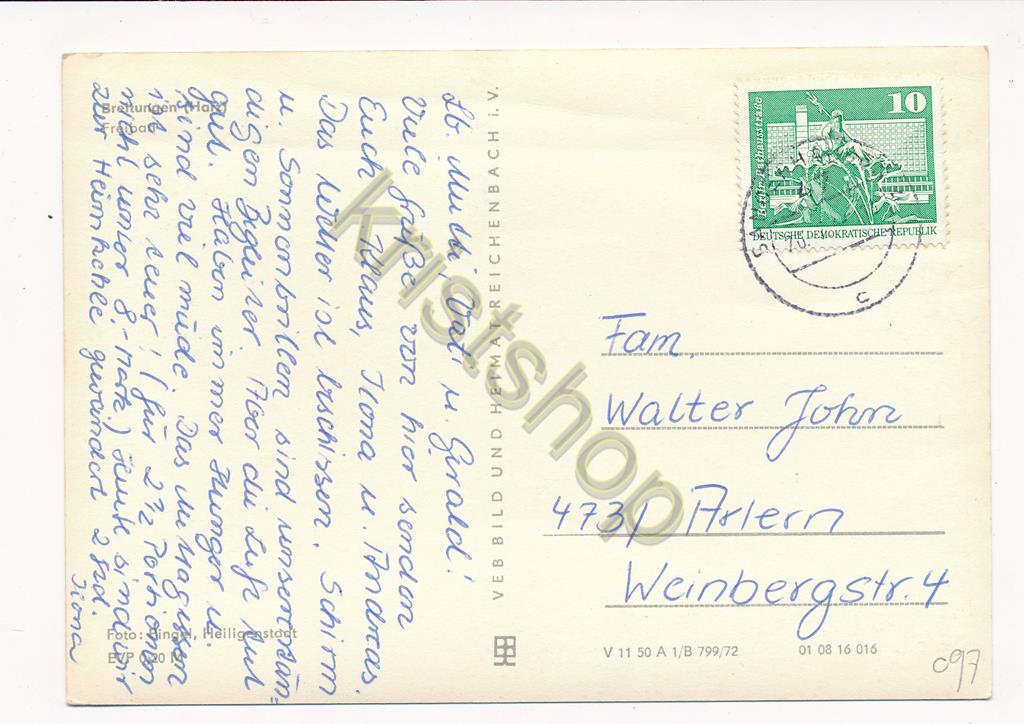 Breitungen (Harz)
Freibad
Lb. Mutti, Vati u. Gerald!
Viele Grüße von hier senden
Euch Klaus, Ilona u. Andreas.
Das Wetter ist beschissen. Schirm
u. Sonnenbrillen sind unsere stän=
digen Begleiter. Aber die Luft tut
gut. Haben immer Hunger u.
sind viel müde. Das Mittagessen
ist sehr teuer! (für 2 1/2 Portionen
nicht unter 8,- Mark) Heute sind wir
zur Heimkehle gewandert 2 Std.
Ilona
Foto: Ringel, Heiligenstadt
EVP 0,20 M
VEB BILD UND HEIMAT REICHENBACH i. V.
Kristshop
10
Berlin, Rathausstraße
DEUTSCHE DEMOKRATISCHE REPUBLIK
c
Fam.
Walter John
4731 Artern
Weinbergstr. 4
V 11 50 A 1/B 799/72
01 08 16 016
c97